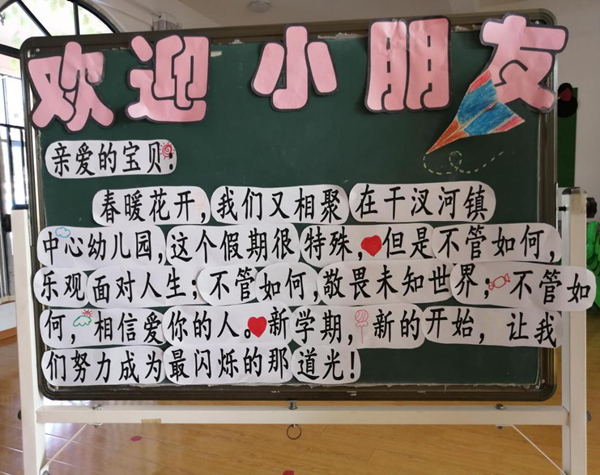 欢迎小朋友
亲爱的宝贝:
春暖花开,我们又相聚在干汊河镇
中心幼儿园,这个假期很特殊,但是不管如何,
乐观面对人生;不管如何,敬畏未知世界;不管如
何,相信爱你的人。新学期,新的开始,让我
们努力成为最闪烁的那道光!